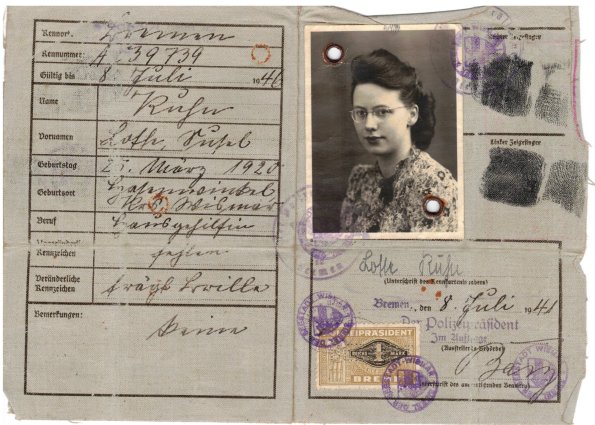 Kennort: Bremen
Kennnummer: A 39739
Gültig bis 8. Juli 1946
Name Kuhn
Vornamen Lotte,
Geburtstag 27. März 1920
Geburtsort Hasenwinkel
Krs. Wismar
Beruf Hausgehilfin
Unveränderliche
Kennzeichen fehlen
Veränderliche
Kennzeichen trägt Brille
Bemerkungen: keine
Rechter Zeigefinger
Linker Zeigefinger
Lotte Kuhn
(Unterschrift des Kennkarteninhabers)
Bremen, den 8. Juli 1941
Der Polizeipräsident
Im Auftrage
(Ausstellende Behörde)
(Unterschrift des ausfertigenden Beamten)
POLIZEIPRÄSIDENT
1
REICHSMARK
BREMEN